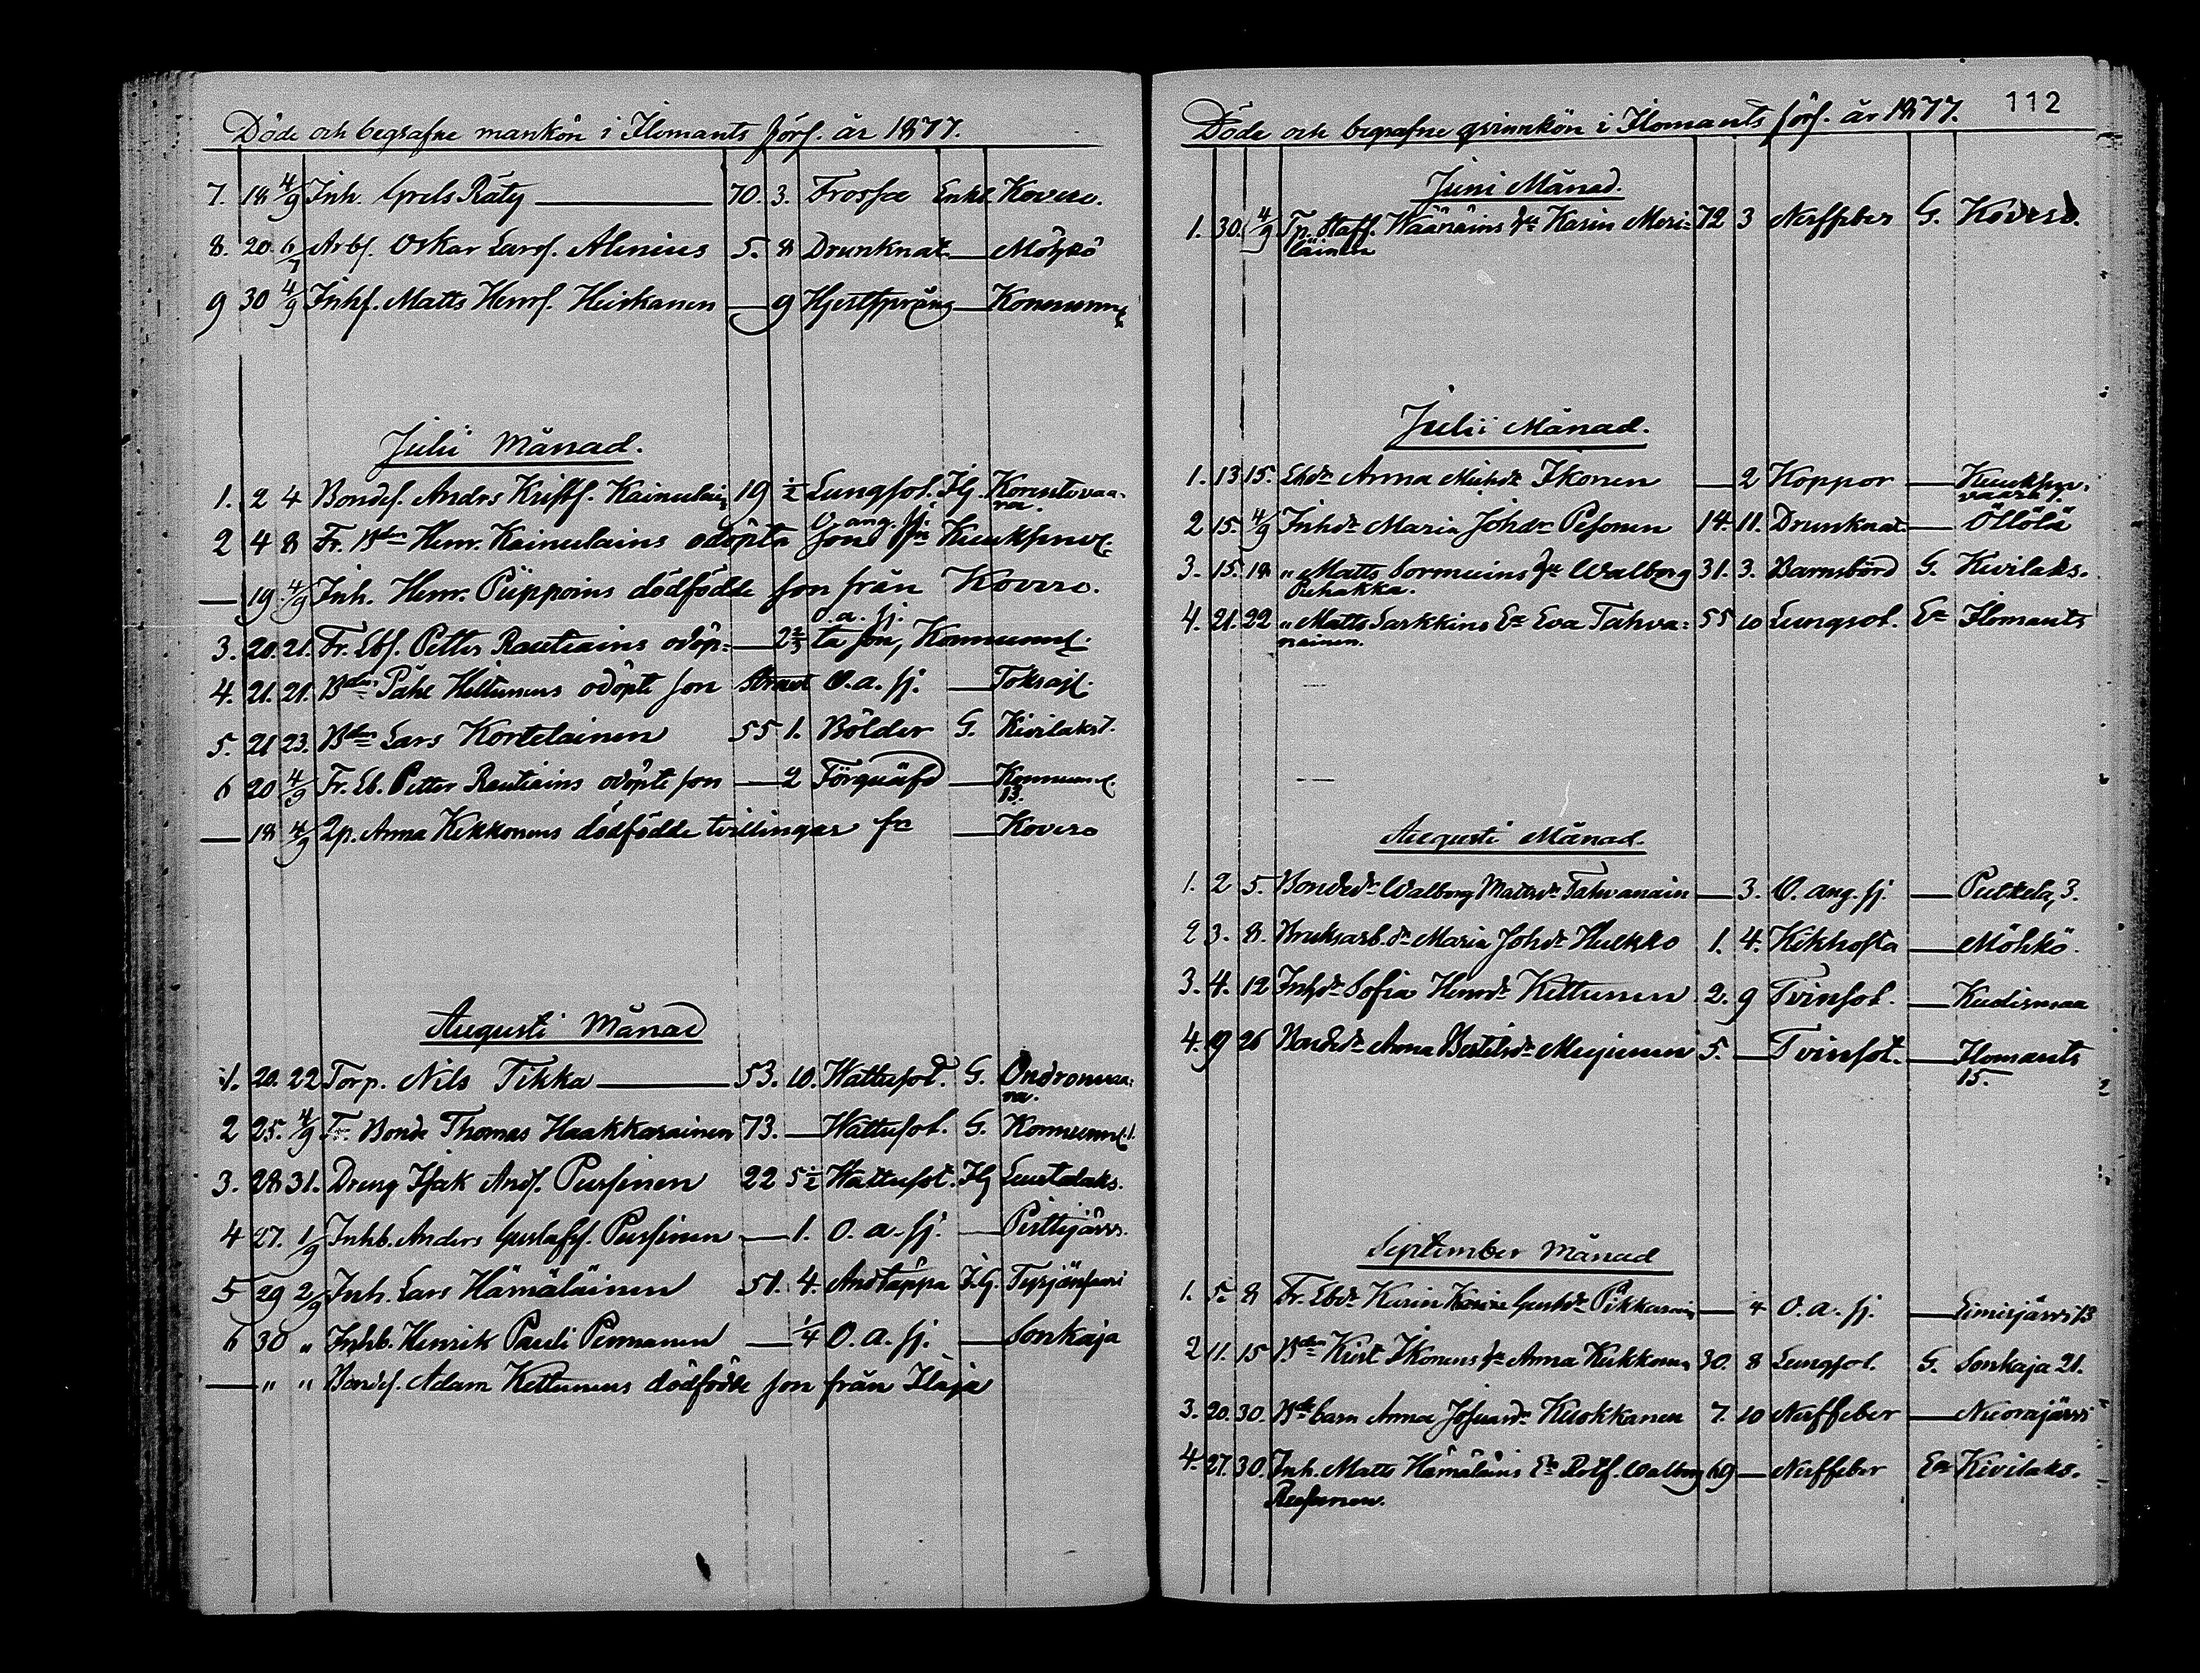 Döde och begrafne mankön i Ilomants förs. år 1877.
7. 18 4/9 Inh. Grels Räty 70. 3. Frossa Enkl. Kovero.
8. 20. 6/7 Arbs. Oskar Larss. Alenius 5. 8 Drunknat Möhkö
9 30 4/9 Inhs. Matts Henrs. Heiskanen 9 Hjertsprång Konnunn
Julii Månad.
1. 2 4 Bondes. Andrs Kristfs. Kainulain 19 1/2 Lungsot. Ig. Korentovaa-
ra.
O ang. sj.
2 4 8 Fr. Bden Henr. Kainulains odöpta son frn Kuuksenv.
19 4/9 Inh. Henr. Piippoins dödfödde son från Kovero.
o. a. sj.
3. 20. 21. Fr. Ebs. Petter Rautiains odöp- 2 2/3 ta son, Konnunn.
4. 21. 21. Bden Påhl Hiltunens odöpte son O. a. sj. Toksajl.
5. 21 23. Bden Lars Kortelainen 55 1. Bölder G. Kivilaks 7.
6 20 4/9 Fr. Eb. Petter Rautiains odöpte son 2 Förquäfd Konnunn.
13.
18 4/9 Qp. Anna Kekkonens dödfödde tvillingar fn Kovero
Augusti Månad
1. 20. 22 Torp. Nils Tikka 53. 10. Wattusot. G. Ondronvaa-
ra.
2 25. 4/9 Fr. Bonde Thomas Haakkarainen 73. Wattusot. G. Konnunn. 1.
3. 28 31. Dreng Isak Ands. Pussinen 22 5 1/2 Wattusot. Ig Luutalaks.
4 27. 1/9 Inhb. Anders Gustafss. Pussinen 1. O. a. sj. Perttijärv.
5 29 2/9 Inh. Lars Hämäläinen 51. 4. Andtäppa I.G. Tyrjänsaari
6 30 " Inhb. Henrik Pauli Pennanen 1/4 O. a. sj. Sonkaja
" " Bondes. Adam Kettunens dödfödde son från Ilaja
112
Döde och begrafne qvinnkön i Ilomants förs. år 1877.
Juni Månad.
1. 30. 4/9 Tp. Staff. Wäänäins hu Karin Meri- 72 3 Nerffeber G. Kovero.
läinen
Julii Månad.
1. 13 15. Ebdr Anna Michdr Ikonen 2 Koppor Kuuksen-
vaara 7.
2 15. 4/9 Inhdr Maria Johdr Pesonen 14. 11. Drunknat Öllölä
3. 15. 18 " Matts Sormuins hu Walborg 31. 3. Barnsbörd G. Kivilaks.
Puhakka.
4. 21. 22. " Matts Sarkkins Ea Eva Tahva- 55 10 Lungsot. Ea Ilomants
nainen.
Augusti Månad.
1. 2 5. Bondedr Walborg Mattsdr Tahvanain 3. O. ang. sj. Putkela, 3.
2 3. 8. Bruksarb. dr Maria Johdr Hukko 1. 4. Kikhosta Möhkö.
3. 4. 12 Inhdr Sofia Henrdr Kettunen 2. 9 Tvinsot. Kudisvaa
4. 19 26 Bondedr Anna Bertilsdr Mujunen 5. Tvinsot. Ilomants
15.
September Månad
1. 5. 8 Fr. Ebdr Karin Gustdr Pikkarain 4 O. a. sj. Liusjärvi 13
2 11. 15 Bden Krist Ikonens hu Anna Kukkonen 30. 8 Lungsot. G. Sonkaja 21.
3. 20. 30. Bde barn Anna Josuasdr Kuokkanen 7. 10 Nerffeber Nuorajärvi
4. 27. 30. Inh. Matts Hämäläins Ea Rotf. Walborg 69 Nerffeber Ea Kivilaks.